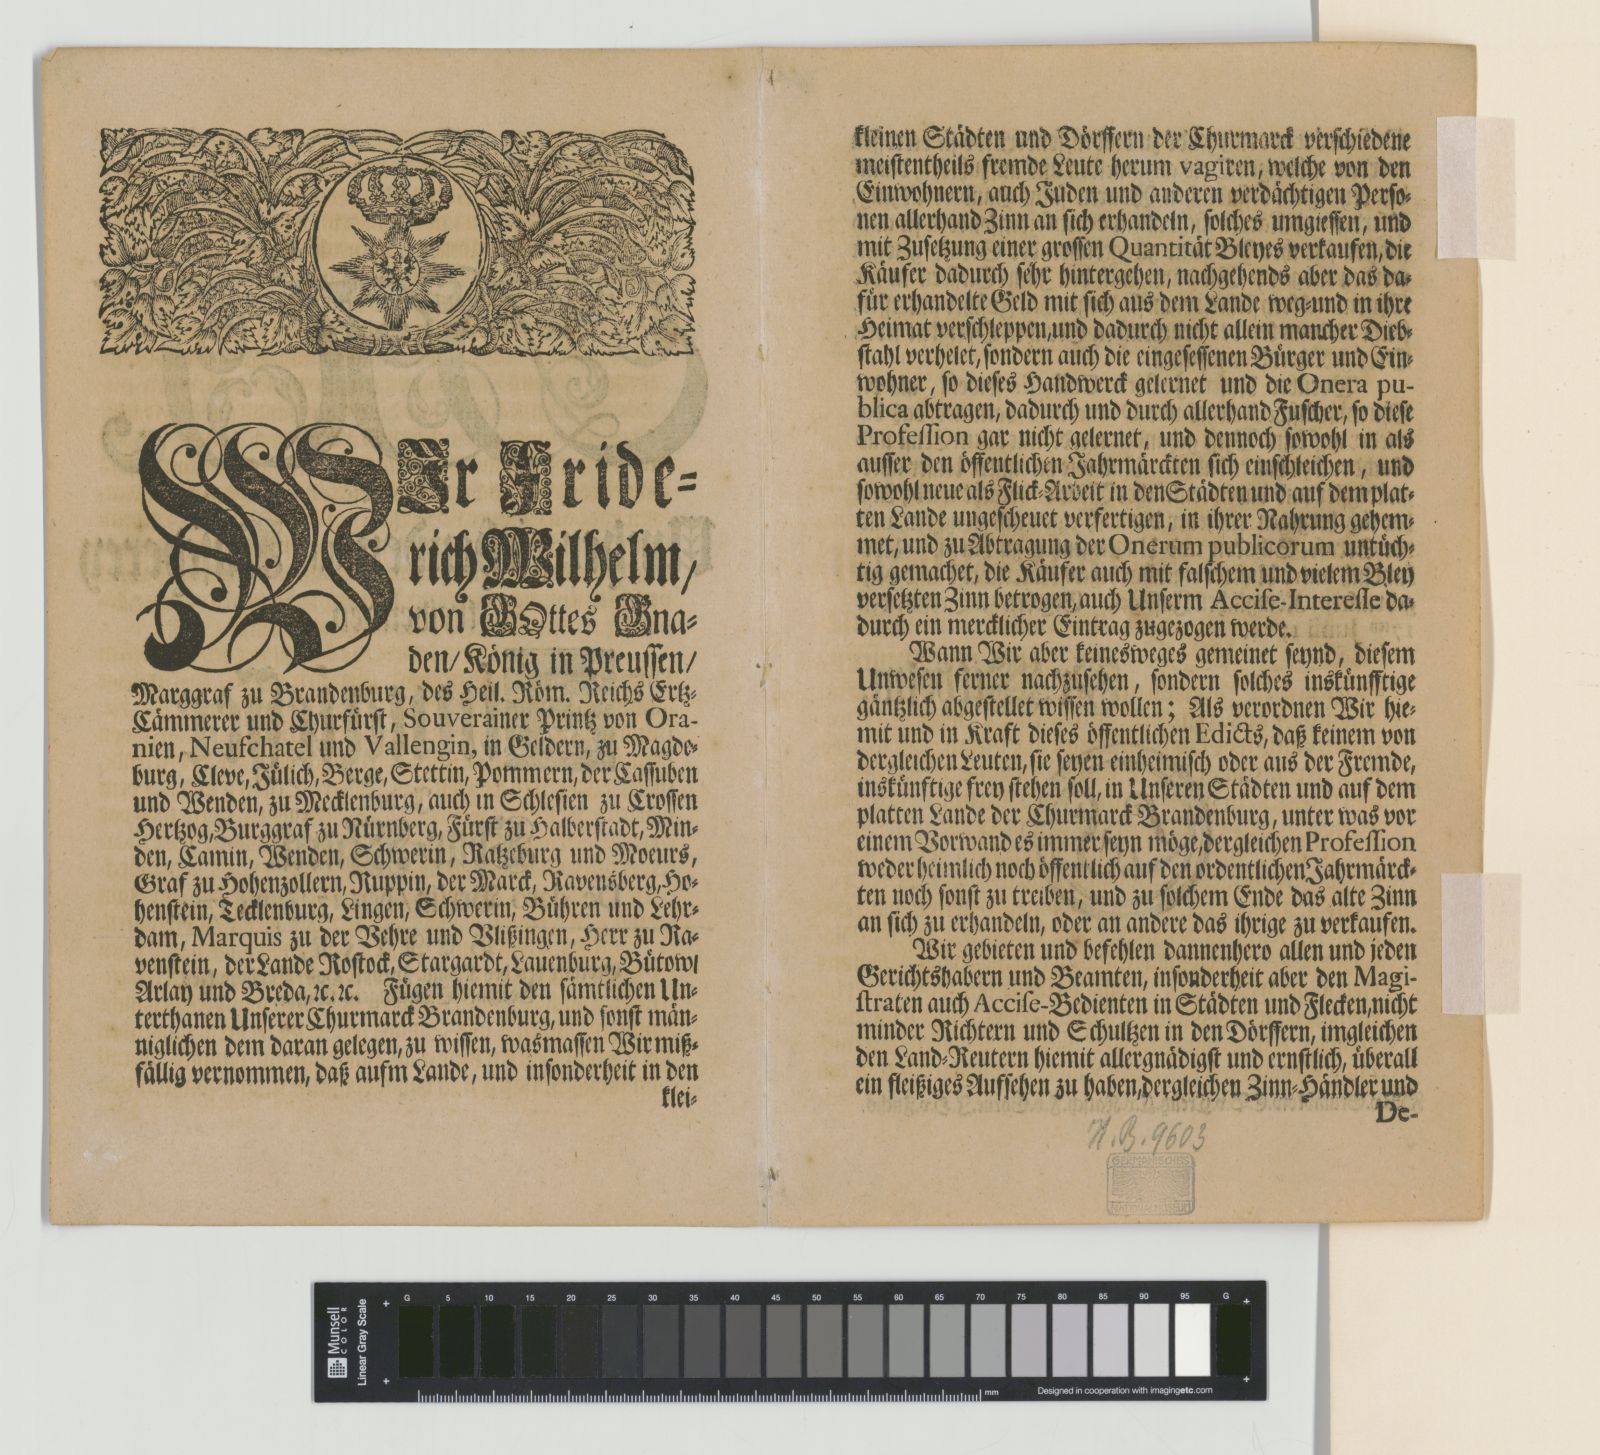 WIr Fride-
rich Wilhelm,
von GOttes Gna-
den/ König in Preussen/
Marggraf zu Brandenburg, des Heil. Röm. Reichs Ertz-
Cämmerer und Churfürst, Souverainer Printz von Ora-
nien, Neufchatel und Vallengin, in Geldern, zu Magde-
burg, Cleve, Jülich, Berge, Stettin, Pommern, der Cassuben
und Wenden, zu Mecklenburg, auch in Schlesien zu Crossen
Hertzog, Burggraf zu Nürnberg, Fürst zu Halberstadt, Min-
den, Camin, Wenden, Schwerin, Ratzeburg und Moeurs,
Graf zu Hohenzollern, Ruppin, der Marck, Ravensberg, Ho-
henstein, Tecklenburg, Lingen, Schwerin, Bühren und Lehr-
dam, Marquis zu der Vehre und Vlißingen, Herr zu Ra-
venstein, der Lande Rostock, Stargardt, Lauenburg, Bütow,
Arlay und Breda, ꝛc. ꝛc. Fügen hiemit den sämtlichen Un-
terthanen Unserer Churmarck Brandenburg, und sonst män-
niglichen dem daran gelegen, zu wissen, wasmassen Wir miß-
fällig vernommen, daß aufm Lande, und insonderheit in den
klei-
kleinen Städten und Dörffern der Churmarck verschiedene
meistentheils fremde Leute herum vagiren, welche von den
Einwohnern, auch Juden und anderen verdächtigen Perso-
nen allerhand Zinn an sich erhandeln, solches umgiessen, und
mit Zusetzung einer grossen Quantität Bleyes verkaufen, die
Käufer dadurch sehr hintergehen, nachgehends aber das da-
für erhandelte Geld mit sich aus dem Lande weg- und in ihre
Heimat verschleppen, und dadurch nicht allein mancher Dieb-
stahl verhelet, sondern auch die eingesessenen Bürger und Ein-
wohner, so dieses Handwerck gelernet und die Onera pu-
blica abtragen, dadurch und durch allerhand Fuscher, so diese
Profession gar nicht gelernet, und dennoch sowohl in als
ausser den öffentlichen Jahrmärckten sich einschleichen, und
sowohl neue als Flick-Arbeit in den Städten und auf dem plat-
ten Lande ungescheuet verfertigen, in ihrer Nahrung gehem-
met, und zu Abtragung der Onerum publicorum untüch-
tig gemachet, die Käufer auch mit falschem und vielem Bley
versetzten Zinn betrogen, auch Unserm Accise-Interesse da-
durch ein mercklicher Eintrag zugezogen werde.
Wann Wir aber keinesweges gemeinet seynd, diesem
Unwesen ferner nachzusehen, sondern solches inskünfftige
gäntzlich abgestellet wissen wollen; Als verordnen Wir hie-
mit und in Kraft dieses öffentlichen Edicts, daß keinem von
dergleichen Leuten, sie seyen einheimisch oder aus der Fremde,
inskünftige frey stehen soll, in Unseren Städten und auf dem
platten Lande der Churmarck Brandenburg, unter was vor
einem Vorwand es immer seyn möge, dergleichen Profession
weder heimlich noch öffentlich auf den ordentlichen Jahrmärck-
ten noch sonst zu treiben, und zu solchem Ende das alte Zinn
an sich zu erhandeln, oder an andere das ihrige zu verkaufen.
Wir gebieten und befehlen dannenhero allen und jeden
Gerichtshabern und Beamten, insonderheit aber den Magi-
straten auch Accise-Bedienten in Städten und Flecken, nicht
minder Richtern und Schultzen in den Dörffern, imgleichen
den Land-Reutern hiemit allergnädigst und ernstlich, überall
ein fleißiges Aufsehen zu haben, dergleichen Zinn-Händler und
De-
H. B. 9603
GERMANISCHES
NATIONALMUSEUM
Munsell
COLOR
Linear Gray Scale
G 5 10 15 20 25 30 35 40 45 50 55 60 65 70 75 80 85 90 95 G
mm
Designed in cooperation with imagingetc.com